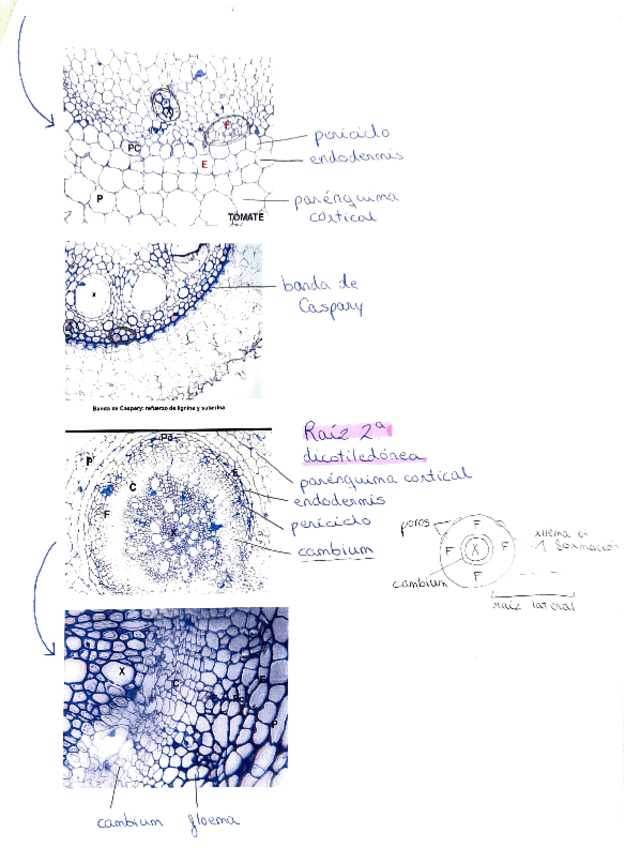 X
F
PC
E
P
TOMATE
periciclo
endodermis
parénquima
cortical
X
banda de
Caspary
Banda de Caspary: refuerzo de lignina y suberina
Raíz 2ª
dicotiledónea
Pd
P
E
C
F
X
parénquima cortical
endodermis
periciclo
cambium
poros
F
F
X
F
F
cambium
xilema en
1 formación
raíz lateral
X
C
F
Pc
E
P
cambium
floema